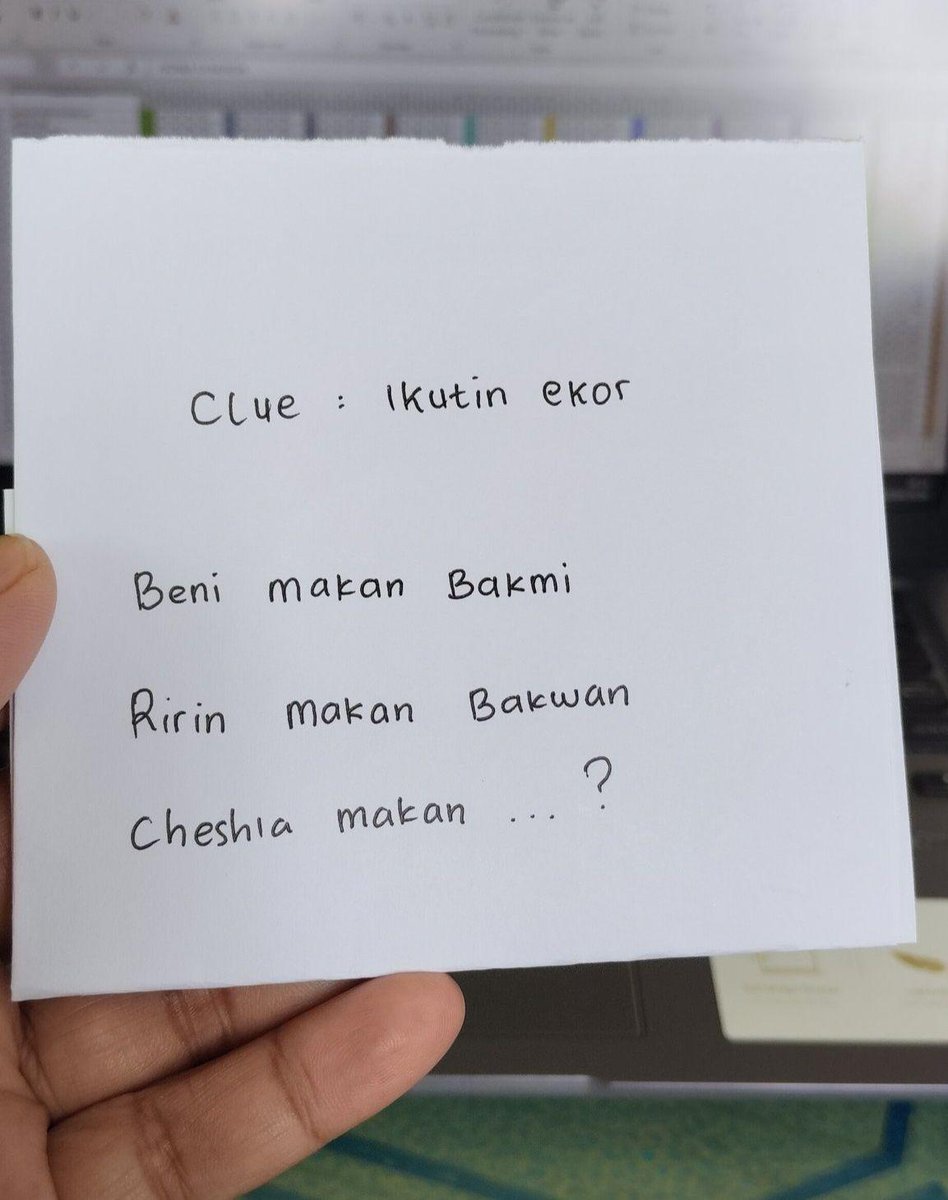 Clue : Ikutin ekor
Beni makan Bakmi
Ririn makan Bakwan
Cheshia makan ... ?